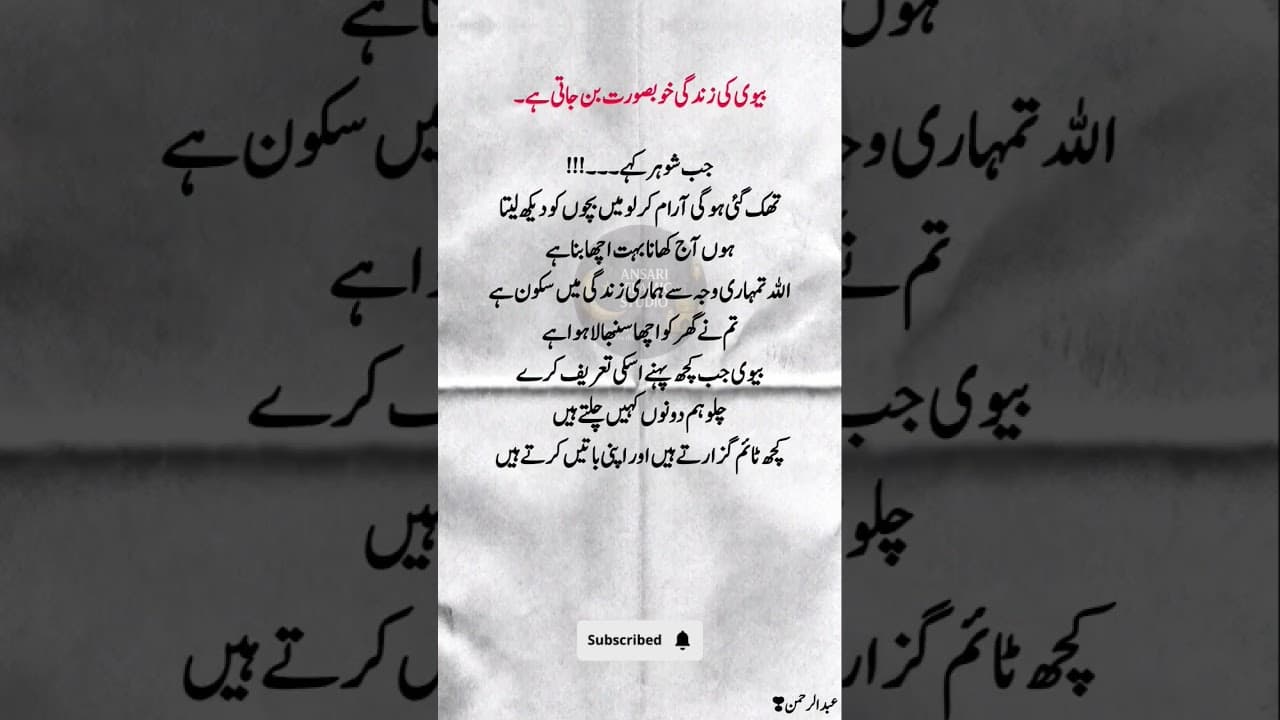 بیوی کی زندگی خوبصورت بن جاتی ہے۔
جب شوہر کہے۔۔۔!!!
تھک گئی ہو گی آرام کر لو میں بچوں کو دیکھ لیتا
ہوں آج کھانا بہت اچھا بنا ہے
اللہ تمہاری وجہ سے ہماری زندگی میں سکون ہے
تم نے گھر کو اچھا سنبھالا ہوا ہے
بیوی جب کچھ پہنے اسکی تعریف کرے
چلو ہم دونوں کہیں چلتے ہیں
کچھ ٹائم گزارتے ہیں اور اپنی باتیں کرتے ہیں
ANSARI
STUDIO
Subscribed
عبدالرحمن❣